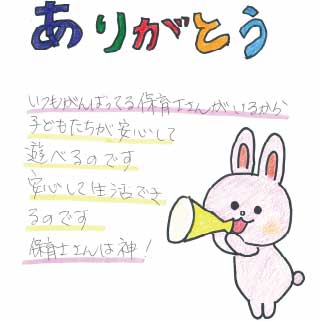 ありがとう
いつもがんばってる保育士さんがいるから
子どもたちが安心して
遊べるのです
安心して生活でき
るのです
保育士さんは神！